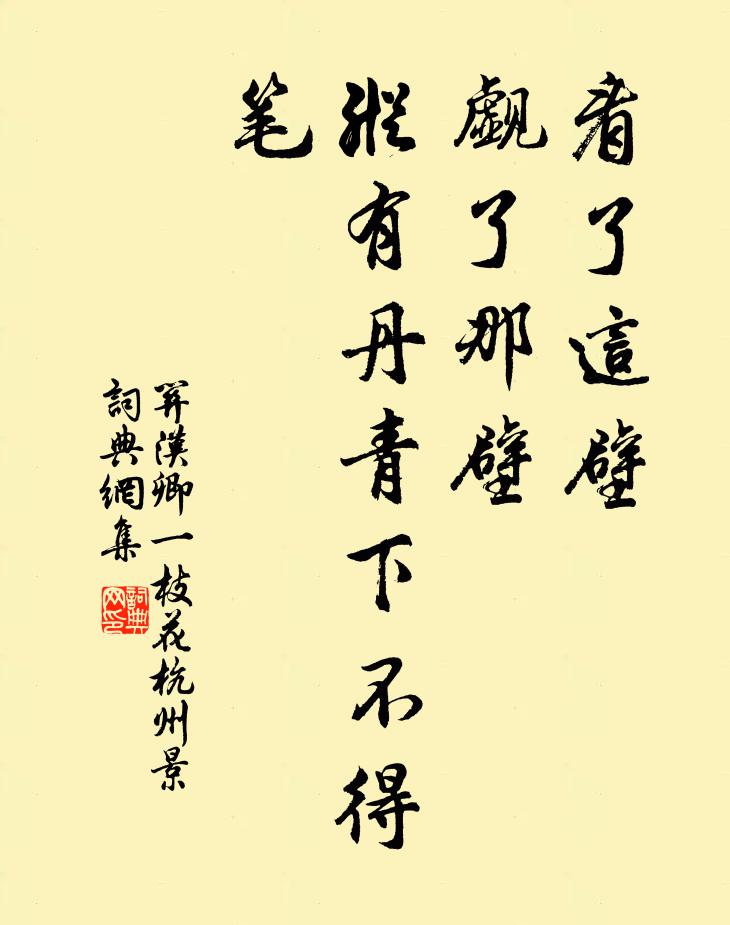 看了這壁
覷了那壁
縱有丹青下不得
笔
關漢卿一枝花杭州景
詞典網集
詞典网印